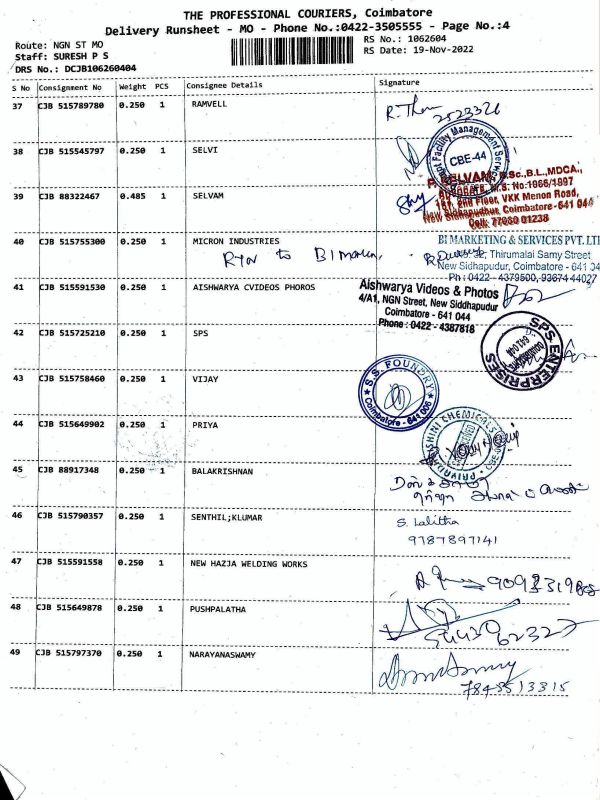 THE PROFESSIONAL COURIERS, Coimbatore
Delivery Runsheet - MO - Phone No.:0422-3505555 - Page No.:4
Route: NGN ST MO
RS No.: 1062604
Staff: SURESH P S
RS Date: 19-Nov-2022
DRS No.: DCJB106260404
S No Consignment No Weight PCS Consignee Details Signature
37 CJB 515789780 0.250 1 RAMVELL
2523326
38 CJB 515545797 0.250 1 SELVI
Facility Management Services
CBE-44
39 CJB 88322467 0.485 1 SELVAM
P. SELVAM, B.Sc.,B.L.,MDCA.,
M.S. No:1066/1997
2nd Floor, VKK Menon Road,
New Sidhapudhur, Coimbatore - 641 044
Cell: 77080 01238
40 CJB 515755300 0.250 1 MICRON INDUSTRIES
to
BI MARKETING & SERVICES PVT. LTD
32, Thirumalai Samy Street
New Sidhapudur, Coimbatore - 641 04
Ph : 0422 - 4379500, 93674 44027
41 CJB 515591530 0.250 1 AISHWARYA CVIDEOS PHOROS
Aishwarya Videos & Photos
4/A1, NGN Street, New Siddhapudur
Coimbatore - 641 044
Phone : 0422 - 4387818
42 CJB 515725210 0.250 1 SPS
SPS ENTERPRISES
COIMBATORE
641 044
43 CJB 515758460 0.250 1 VIJAY
S.S. FOUNDRY
Coimbatore - 641 006
44 CJB 515649902 0.250 1 PRIYA
CHEMICALS
45 CJB 88917348 0.250 1 BALAKRISHNAN
46 CJB 515790357 0.250 1 SENTHIL;KLUMAR
S. Lalitha
9787897141
47 CJB 515591558 0.250 1 NEW HAZJA WELDING WORKS
48 CJB 515649878 0.250 1 PUSHPALATHA
49 CJB 515797370 0.250 1 NARAYANASWAMY
7845513315